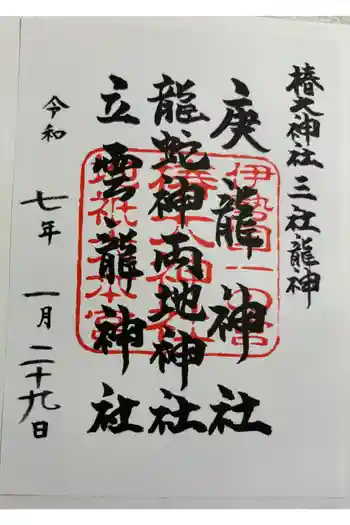 椿大神社 三社龍神
庚龍神社
龍蛇神両地神社
立雲龍神社
令和 七年 一月 二十九日
伊勢国一の宮